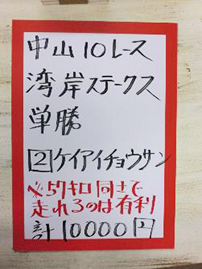 中山10レース
湾岸ステークス
単勝
2ケイアイチョウサン
※57キロ同士で
走れるのは有利
計10000円